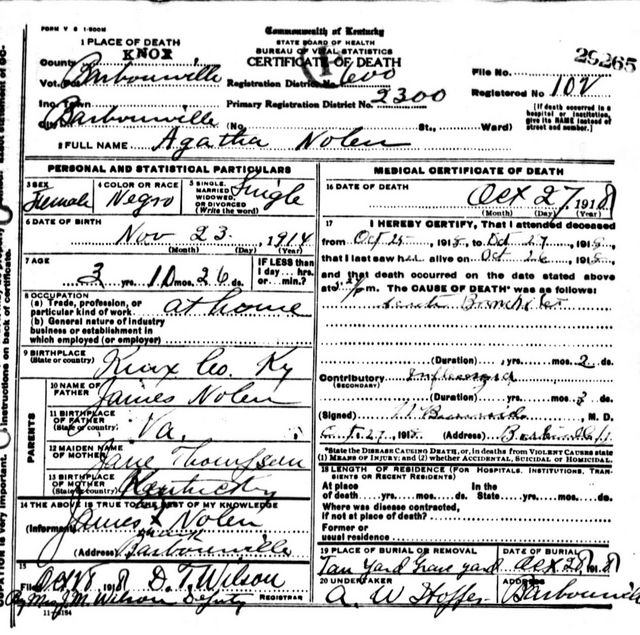 FORM V S 1-500M
Commonwealth of Kentucky
STATE BOARD OF HEALTH
BUREAU OF VITAL STATISTICS
CERTIFICATE OF DEATH
29265
1 PLACE OF DEATH
County KNOX
Vot. Pct Barbourville
Registration District No. 600
File No.
Inc. Town Barbourville
Primary Registration District No. 2300
Registered No 102
[If death occurred in a hospital or institution, give its NAME instead of street and number.]
City (No. St., Ward)
2 FULL NAME Agatha Nolen
PERSONAL AND STATISTICAL PARTICULARS
3 SEX Female
4 COLOR OR RACE Negro
5 SINGLE, MARRIED, WIDOWED, OR DIVORCED (Write the word) Single
6 DATE OF BIRTH
Nov 23, 1914
(Month) (Day) (Year)
7 AGE
3 yrs. 10 mos. 26 ds.
IF LESS than 1 day ... hrs. or ... min.?
8 OCCUPATION
(a) Trade, profession, or particular kind of work at home
(b) General nature of industry
business or establishment in
which employed (or employer)
9 BIRTHPLACE
(State or country) Knox Co. Ky
PARENTS
10 NAME OF FATHER James Nolen
11 BIRTHPLACE OF FATHER (State or country) Va.
12 MAIDEN NAME OF MOTHER Jane Thompson
13 BIRTHPLACE OF MOTHER (State or country) Kentucky
14 THE ABOVE IS TRUE TO THE BEST OF MY KNOWLEDGE
(Informant) James Nolen
(Address) Barbourville
15
Filed Oct 28 1918 D. T. Wilson
REGISTRAR
By Mrs J. M. Wilson Deputy
11-3184
MEDICAL CERTIFICATE OF DEATH
16 DATE OF DEATH
Oct 27, 1918
(Month) (Day) (Year)
17 I HEREBY CERTIFY, That I attended deceased
from Oct 25, 1918, to Oct 27, 1918,
that I last saw her alive on Oct 26, 1918,
and that death occurred on the date stated above
at m. The CAUSE OF DEATH* was as follows:
(Duration) yrs. mos. 2 ds.
Contributory Influenza
(SECONDARY)
(Duration) yrs. mos. 3 ds.
(Signed) M. D.
Oct 27, 1918 (Address)
*State the DISEASE CAUSING DEATH, or, in deaths from VIOLENT CAUSES state (1) MEANS OF INJURY; and (2) whether ACCIDENTAL, SUICIDAL or HOMICIDAL.
18 LENGTH OF RESIDENCE (FOR HOSPITALS, INSTITUTIONS, TRANSIENTS OR RECENT RESIDENTS)
At place of death yrs. mos. ds. In the State yrs. mos. ds.
Where was disease contracted,
if not at place of death?
Former or
usual residence
19 PLACE OF BURIAL OR REMOVAL
Tan Yard Grave yard
DATE OF BURIAL
Oct 28 1918
20 UNDERTAKER
A. W. Hopper
ADDRESS
Barbourville